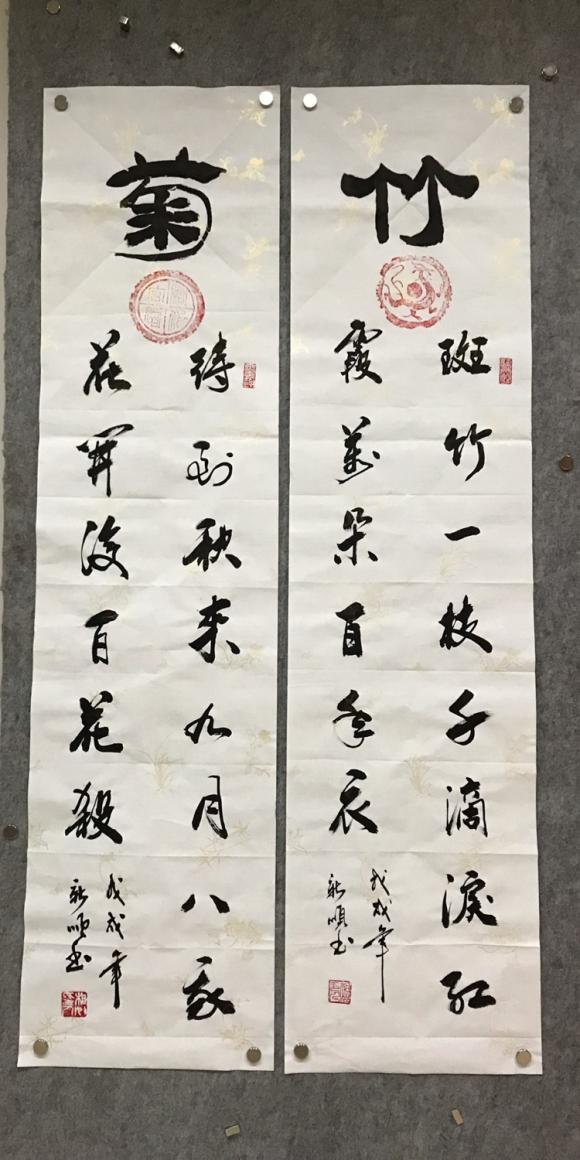 竹
斑竹一枝千滴淚紅
霞萬朵百重衣
戊戌年
新順書
菊
待到秋來九月八我
花開後百花殺
戊戌年
新順書